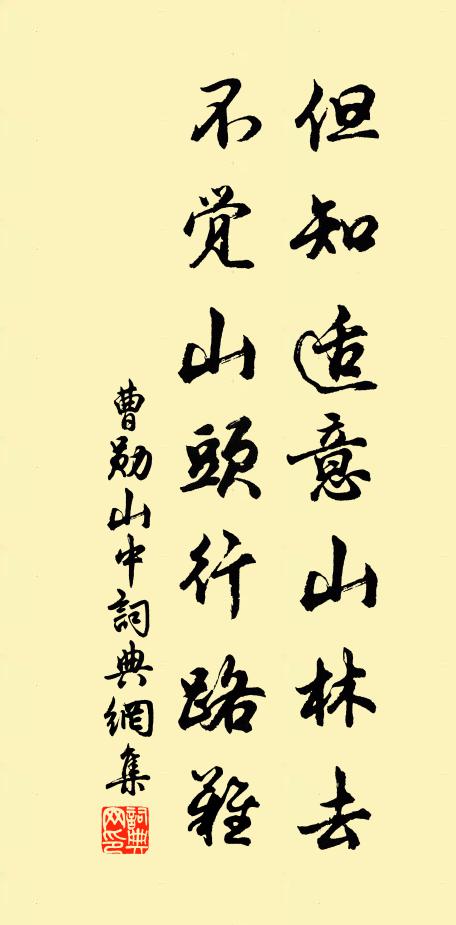 但知适意山林去
不觉山頭行路难
曹勋山中詞典網集
詞典网印